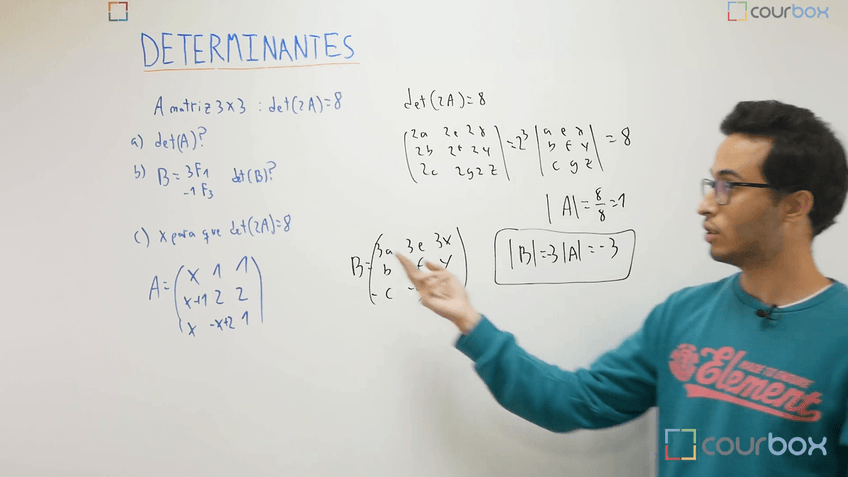 courbox
DETERMINANTES
A matriz 3x3 : det(2A)=8
a) det(A)?
b) B = 3F1
-1 F3 det(B)?
c) x para que det(2A)=8
A = ( x 1 1
x+1 2 2
x -x+2 1 )
det(2A)=8
2a 2e 2x
2b 2f 2y
2c 2g 2z
= 2³
a e x
b f y
c g z
= 8
|A| = 8/8 = 1
B = ( 3a 3e 3x
b f y
-c
|B| = -3|A| = -3
MADE TO ENDURE
Element
courbox